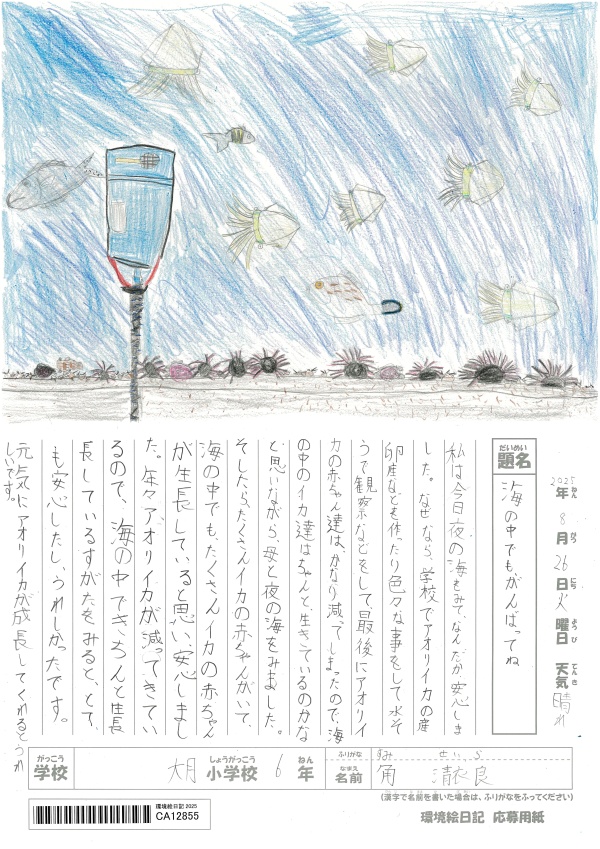 2025年 8月 26日 火曜日 天気 晴れ
ねん がつ にち ようび てんき
だいめい
題名
海の中でもがんばってね
私は今日夜の海をみて、なんだか安心しま
した。なぜなら、学校でアオリイカの産
卵床などを作ったり色々な事をして、水そ
うで観察などをして最後にアオリイ
カの赤ちゃん達は、かなり減ってしまったので、海
の中のイカ達はちゃんと、生きているのかな
と思いながら、母と夜の海をみました。
そしたらたくさんイカの赤ちゃんがいて、
海の中でも、たくさんイカの赤ちゃん
が生長していると思い、安心しまし
た。年々アオリイカが減ってきてい
るので、海の中できちんと生長
長しているすがたをみると、とて
も安心したし、うれしかったです。
元気にアオリイカが成長してくれるとうれ
しいです。
がっこう
学校
しょうがっこう
小学校 6年
ねん
ふりがな すみ せいら
なまえ
名前 角 清衣良
(漢字で名前を書いた場合は、ふりがなをふってください)
環境絵日記 2025
CA12855
環境絵日記 応募用紙